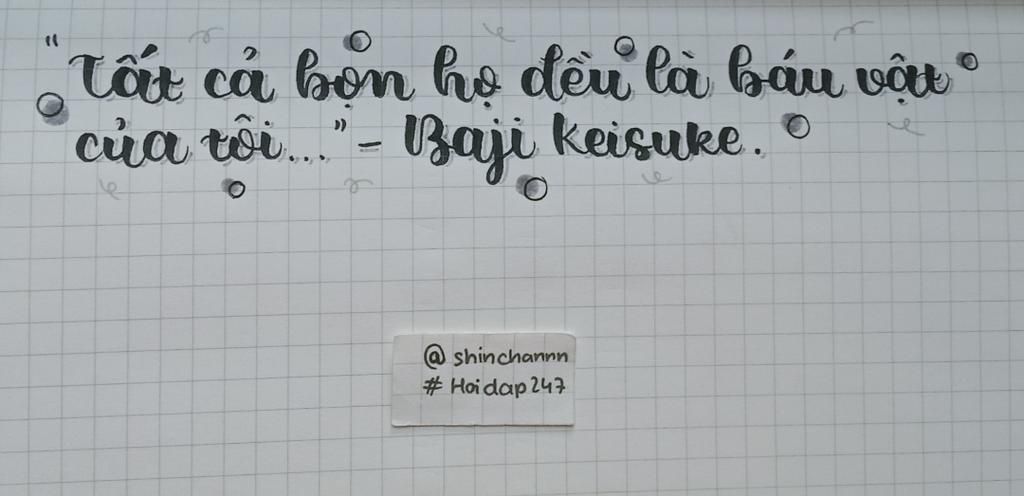 "Tất cả bọn họ đều là báu vật
của tôi..." - Baji Keisuke.
@shinchannn
#Hoidap247